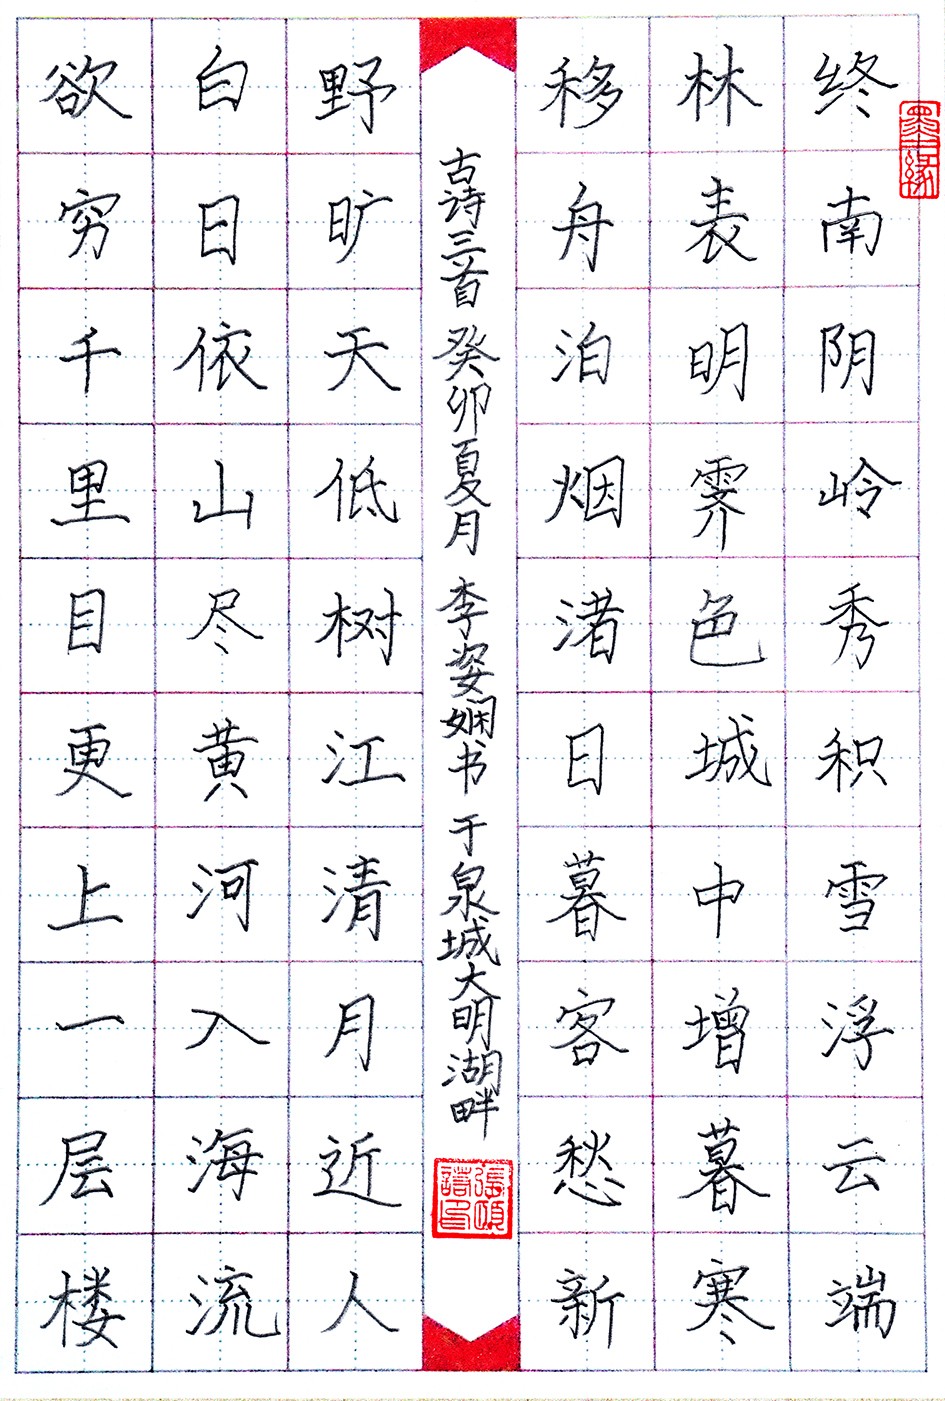 终南阴岭秀积雪浮云端
林表明霁色城中增暮寒
移舟泊烟渚日暮客愁新
古诗三首 癸卯夏月 李姿娴书 于泉城大明湖畔
野旷天低树江清月近人
白日依山尽黄河入海流
欲穷千里目更上一层楼
墨缘